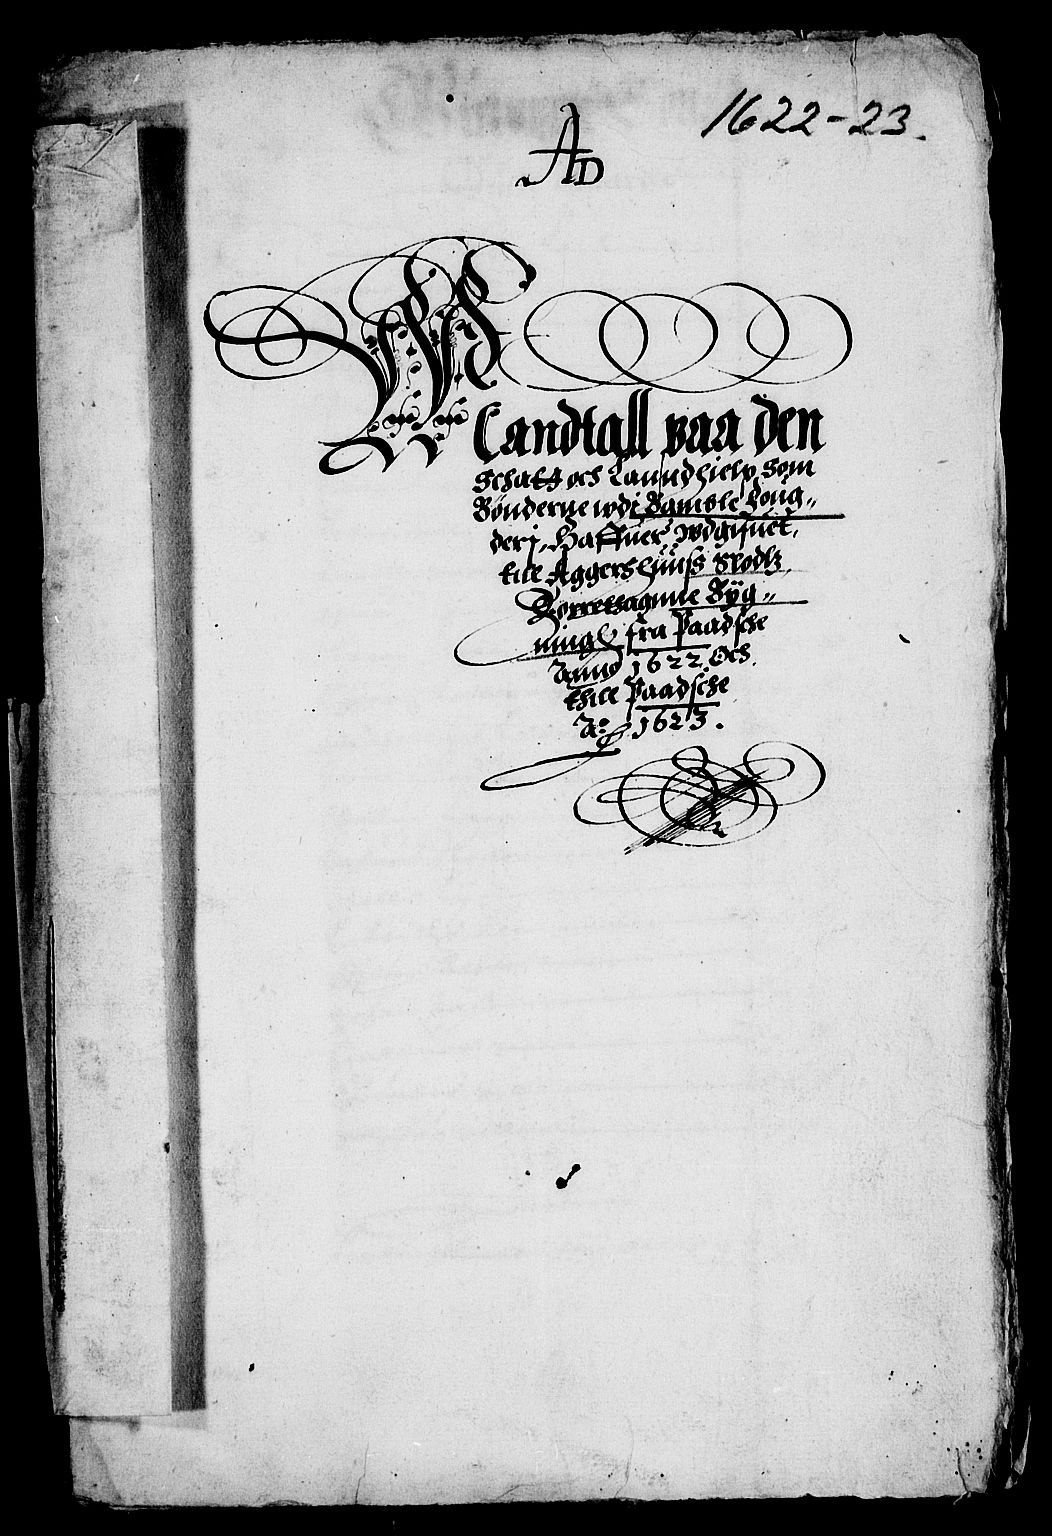 1622-23.
AD
Mandtall paa den
Schatt och Lanndhielp Som
Bønderne wdj Bamble Long-
derj, Haffuer wdgifuet,
till Aggershuuss Slodtz
Bygnings fra Paadsche
Anno 1622 Och
thill Paadsche
Ao: 1623.